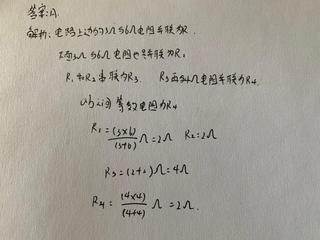 答案:A.
解析:电路上边的3Ω与6Ω电阻并联为R₁
3Ω与6Ω电阻也并联为R₂
R₁和R₂串联为R₃. R₃再与4Ω电阻并联为R₄.
ab之间等效电阻为R₄
R₁=(3×6)/(3+6)Ω=2Ω R₂=2Ω
R₃=(2+2)Ω=4Ω
R₄=(4×4)/(4+4)Ω=2Ω.